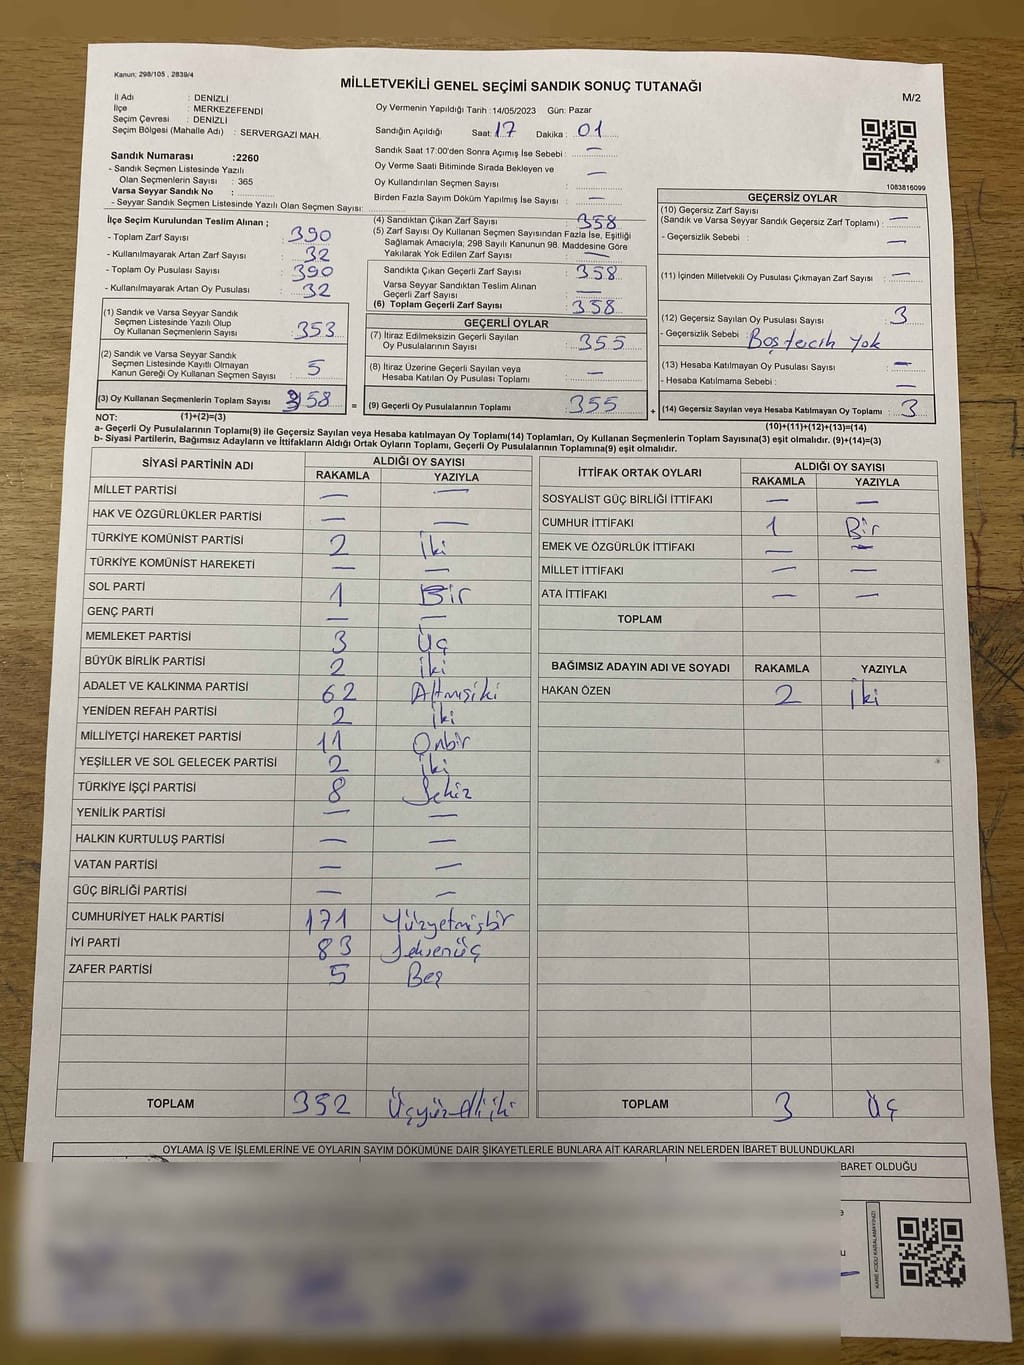 Kanun: 298/105 , 2839/4
MİLLETVEKİLİ GENEL SEÇİMİ SANDIK SONUÇ TUTANAĞI
M/2
İl Adı : DENİZLİ
İlçe : MERKEZEFENDİ
Seçim Çevresi : DENİZLİ
Seçim Bölgesi (Mahalle Adı) : SERVERGAZİ MAH.
Oy Vermenin Yapıldığı Tarih :14/05/2023 Gün: Pazar
Sandığın Açıldığı Saat: 17 Dakika : 01
Sandık Saat 17:00'den Sonra Açımış İse Sebebi : —
Oy Verme Saati Bitiminde Sırada Bekleyen ve
Oy Kullandırılan Seçmen Sayısı : —
Birden Fazla Sayım Döküm Yapılmış İse Sayısı : —
Sandık Numarası :2260
- Sandık Seçmen Listesinde Yazılı
Olan Seçmenlerin Sayısı : 365
Varsa Seyyar Sandık No :
- Seyyar Sandık Listesinde Yazılı Olan Seçmen Sayısı:
1083816099
İlçe Seçim Kurulundan Teslim Alınan ;
- Toplam Zarf Sayısı : 390
- Kullanılmayarak Artan Zarf Sayısı : 32
- Toplam Oy Pusulası Sayısı : 390
- Kullanılmayarak Artan Oy Pusulası : 32
(1) Sandık ve Varsa Seyyar Sandık
Seçmen Listesinde Yazılı Olup
Oy Kullanan Seçmenlerin Sayısı : 353
(2) Sandık ve Varsa Seyyar Sandık
Seçmen Listesinde Kayıtlı Olmayan
Kanun Gereği Oy Kullanan Seçmen Sayısı : 5
(3) Oy Kullanan Seçmenlerin Toplam Sayısı : 358
(1)+(2)=(3)
(4) Sandıktan Çıkan Zarf Sayısı : 358
(5) Zarf Sayısı Oy Kullanan Seçmen Sayısından Fazla İse, Eşitliği
Sağlamak Amacıyla, 298 Sayılı Kanunun 98. Maddesine Göre
Yakılarak Yok Edilen Zarf Sayısı : —
Sandıkta Çıkan Geçerli Zarf Sayısı : 358
Varsa Seyyar Sandıktan Teslim Alınan
Geçerli Zarf Sayısı : —
(6) Toplam Geçerli Zarf Sayısı : 358
GEÇERLİ OYLAR
(7) İtiraz Edilmeksizin Geçerli Sayılan
Oy Pusulalarının Sayısı : 355
(8) İtiraz Üzerine Geçerli Sayılan veya
Hesaba Katılan Oy Pusulası Toplamı : —
= (9) Geçerli Oy Pusulalarının Toplamı : 355
GEÇERSİZ OYLAR
(10) Geçersiz Zarf Sayısı
(Sandık ve Varsa Seyyar Sandık Geçersiz Zarf Toplamı) : —
- Geçersizlik Sebebi : —
(11) İçinden Milletvekili Oy Pusulası Çıkmayan Zarf Sayısı : —
(12) Geçersiz Sayılan Oy Pusulası Sayısı : 3
- Geçersizlik Sebebi : Boş tercih yok
(13) Hesaba Katılmayan Oy Pusulası Sayısı : —
- Hesaba Katılmama Sebebi : —
+ (14) Geçersiz Sayılan veya Hesaba Katılmayan Oy Toplamı : 3
(10)+(11)+(12)+(13)=(14)
NOT:
a- Geçerli Oy Pusulalarının Toplamı(9) ile Geçersiz Sayılan veya Hesaba katılmayan Oy Toplamı(14) Toplamları, Oy Kullanan Seçmenlerin Toplam Sayısına(3) eşit olmalıdır. (9)+(14)=(3)
b- Siyasi Partilerin, Bağımsız Adayların ve İttifakların Aldığı Ortak Oyların Toplamı, Geçerli Oy Pusulalarının Toplamına(9) eşit olmalıdır.
SİYASİ PARTİNİN ADI ALDIĞI OY SAYISI
RAKAMLA YAZIYLA
MİLLET PARTİSİ — —
HAK VE ÖZGÜRLÜKLER PARTİSİ — —
TÜRKİYE KOMÜNİST PARTİSİ 2 İki
TÜRKİYE KOMÜNİST HAREKETİ — —
SOL PARTİ 1 Bir
GENÇ PARTİ — —
MEMLEKET PARTİSİ 3 Üç
BÜYÜK BİRLİK PARTİSİ 2 İki
ADALET VE KALKINMA PARTİSİ 62 Altmışiki
YENİDEN REFAH PARTİSİ 2 İki
MİLLİYETÇİ HAREKET PARTİSİ 11 Onbir
YEŞİLLER VE SOL GELECEK PARTİSİ 2 İki
TÜRKİYE İŞÇİ PARTİSİ 8 Sekiz
YENİLİK PARTİSİ — —
HALKIN KURTULUŞ PARTİSİ — —
VATAN PARTİSİ — —
GÜÇ BİRLİĞİ PARTİSİ — —
CUMHURİYET HALK PARTİSİ 171 Yüzyetmişbir
İYİ PARTİ 83 Seksenüç
ZAFER PARTİSİ 5 Beş
TOPLAM 352 Üçyüzelliiki
İTTİFAK ORTAK OYLARI ALDIĞI OY SAYISI
RAKAMLA YAZIYLA
SOSYALİST GÜÇ BİRLİĞİ İTTİFAKI — —
CUMHUR İTTİFAKI 1 Bir
EMEK VE ÖZGÜRLÜK İTTİFAKI — —
MİLLET İTTİFAKI — —
ATA İTTİFAKI — —
TOPLAM
BAĞIMSIZ ADAYIN ADI VE SOYADI RAKAMLA YAZIYLA
HAKAN ÖZEN 2 İki
TOPLAM 3 Üç
OYLAMA İŞ VE İŞLEMLERİNE VE OYLARIN SAYIM DÖKÜMÜNE DAİR ŞİKAYETLERLE BUNLARA AİT KARARLARIN NELERDEN İBARET BULUNDUKLARI
BARET OLDUĞU
KARE KODU KARALAMAYINIZ!